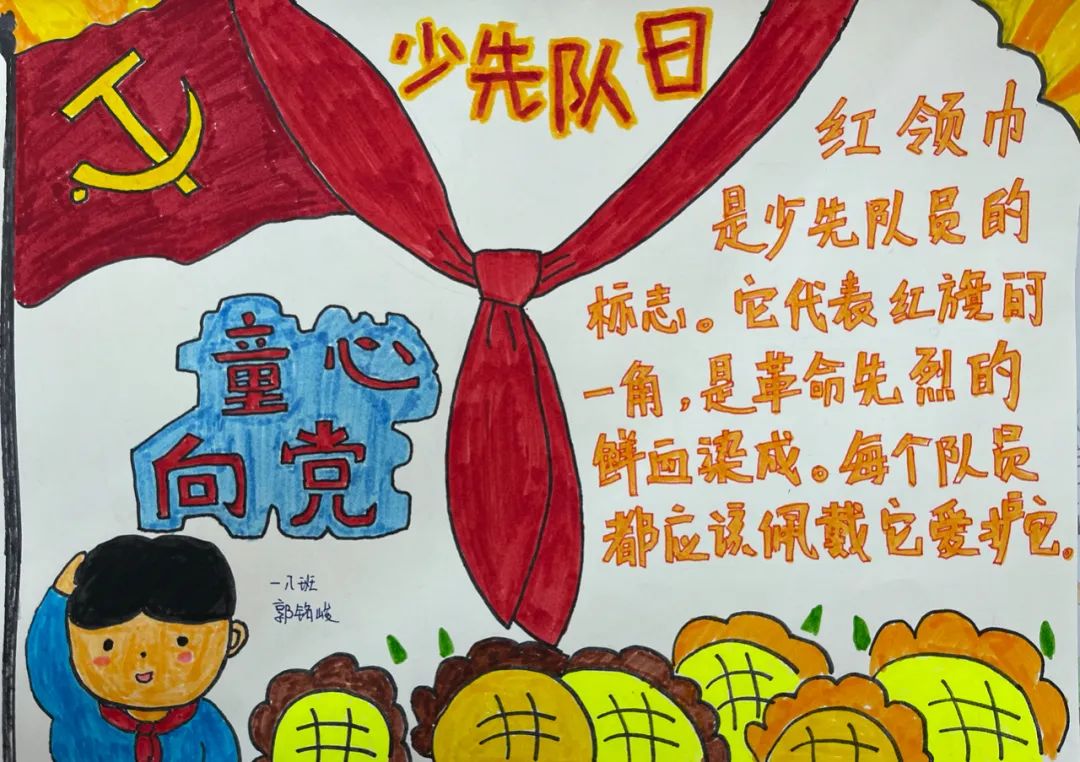 少先队日
红领巾
是少先队员的
标志。它代表红旗的
一角，是革命先烈的
鲜血染成。每个队员
都应该佩戴它爱护它。
童心
向党
一八班
郭铭峻